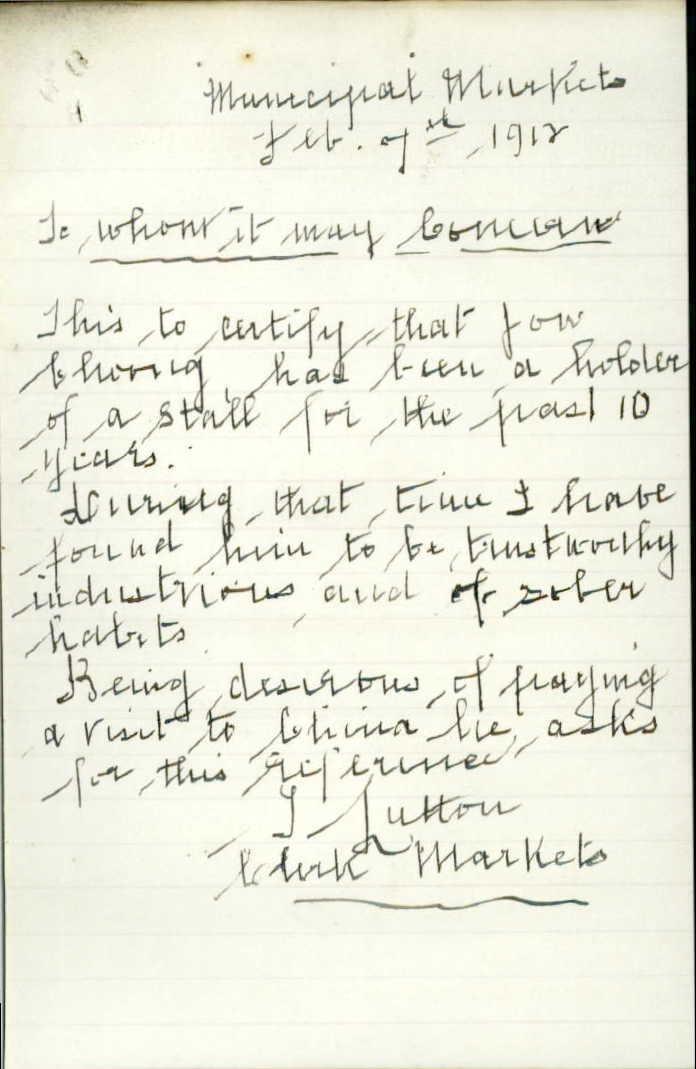 Municipal Markets
Feb. 7th, 1912
To whom it may Concern
This to certify that
Choong has been a holder
of a stall for the past 10
years.
During that time I have
found him to be trustworthy
industrious and of sober
habits
Being desirous of paying
a visit to China he asks
for this reference
Clerk Markets